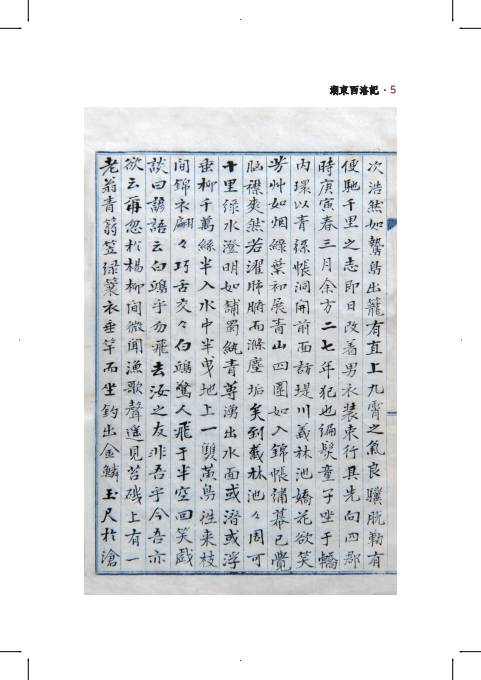 湖東西洛記 · 5
次浩然如鷙鳥出籠有直上九霄之氣良驥脫勒有
便馳千里之志卽日改着男衣裝束行具先向四郡
時庚寅春三月余方二七年犯也編髮童子坐于轎
內環以靑絲帳洞開前面訪堤川義林池嬌花欲笑
芳艸如烟綠葉初展靑山四圍如入錦帳繡幕已覺
腦襟爽然若濯肺腑而滌塵垢矣到義林池々周可
十里綠水澄明如鋪蜀紈靑蓴湧出水面或潛或浮
垂柳千萬絲半入水中半曳地上一雙黃鳥往來枝
間錦衣翩々巧舌交々白鷗驚人飛于半空回笑戲
談曰諺語云白鷗乎勿飛去汝之友非吾乎今吾亦
欲云爾忽於楊柳間微聞漁歌聲遙見苔磯上有一
老翁靑蒻笠綠簑衣垂竿而坐釣出金鱗玉尺於滄